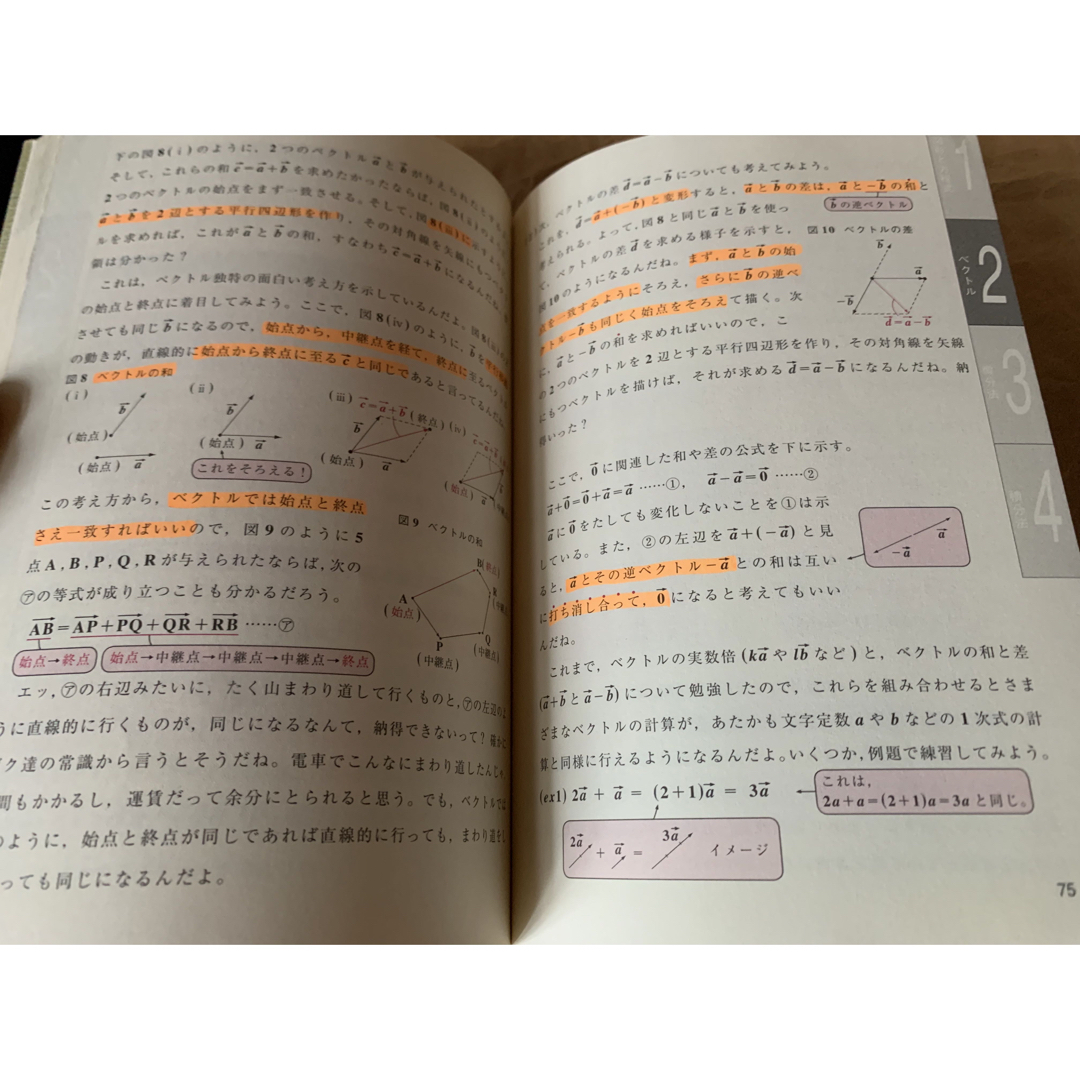 下の図8(ⅰ)のように，2つのベクトルa→とb→が与えられたとする。
そして，これらの和c→=a→+b→を求めたかったならば，図8(ⅱ)のように
2つのベクトルの始点をまず一致させる。そして，図8(ⅲ)に示すように
a→とb→を2辺とする平行四辺形を作り，その対角線を矢線にもつベクト
ルを求めれば，これがa→とb→の和，すなわちc→=a→+b→になるんだね。
領は分かった？
これは，ベクトル独特の面白い考え方を示しているんだよ。
の始点と終点に着目してみよう。ここで，図8(ⅳ)のように，b→を
させても同じb→になるので，始点から，中継点を経て，終点に至るベクトル
の動きが，直線的に始点から終点に至るc→と同じであると言ってるんだ
図8 ベクトルの和
(ⅰ)
b→
(始点)
(始点) a→
(ⅱ)
b→
(始点) a→
これをそろえる！
(ⅲ) c→=a→+b→(終点)
b→
(始点)
a→
(ⅳ)
c→=a→+b→
(始点)
a→
この考え方から，ベクトルでは始点と終点
さえ一致すればいいので，図9のように5
点A,B,P,Q,Rが与えられたならば，次の
㋐の等式が成り立つことも分かるだろう。
AB→=AP→+PQ→+QR→+RB→ ……㋐
始点→終点
始点→中継点→中継点→中継点→終点
図9 ベクトルの和
B(終点)
R
A
(始点)
P
(中継点)
Q
(中継点)
エッ，㋐の右辺みたいに，たく山まわり道して行くものと，㋐の左辺のよ
うに直線的に行くものが，同じになるなんて，納得できないって？確かに
ク達の常識から言うとそうだね。電車でこんなにまわり道したんじゃ
間もかかるし，運賃だって余分にとられると思う。でも，ベクトルでは
のように，始点と終点が同じであれば直線的に行っても，まわり道をし
っても同じになるんだよ。
次，ベクトルの差d→=a→-b→についても考えてみよう。
これを，d→=a→+(-b→)と変形すると，a→とb→の差は，a→と-b→の和と
b→の逆ベクトル
考えられる。よって，図8と同じa→とb→を使っ
て，ベクトルの差d→を求める様子を示すと，
図10のようになるんだね。まず，a→とb→の始
点を一致するようにそろえ，さらにb→の逆ベ
クトル-b→も同じく始点をそろえて描く。次
に，a→と-b→の和を求めればいいので，こ
の2つのベクトルを2辺とする平行四辺形を作り，その対角線を矢線
にもつベクトルを描けば，それが求めるd→=a→-b→になるんだね。納
得いった？
図10 ベクトルの差
b→
a→
-b→
d→=a→-b→
ここで，0→に関連した和や差の公式を下に示す。
a→+0→=0→+a→=a→ ……①， a→-a→=0→ ……②
a→に0→をたしても変化しないことを①は示
している。また，②の左辺をa→+(-a→)と見
ると，a→とその逆ベクトル-a→との和は互い
に打ち消し合って，0→になると考えてもいい
んだね。
a→
-a→
これまで，ベクトルの実数倍(ka→やlb→など)と，ベクトルの和と差
(a→+b→とa→-b→)について勉強したので，これらを組み合わせるとさま
ざまなベクトルの計算が，あたかも文字定数aやbなどの1次式の計
算と同様に行えるようになるんだよ。いくつか，例題で練習してみよう。
(ex1) 2a→ + a→ = (2+1)a→ = 3a→
これは，
2a+a=(2+1)a=3aと同じ。
2a→ + a→ = 3a→ イメージ
75
1
2
ベクトル
3
4